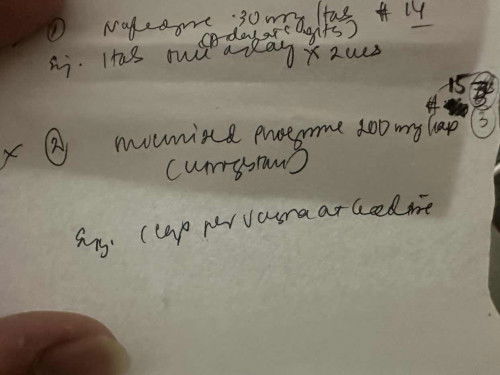 ① Nifedipine 30 mg/tab # 14
(Adalat Gits)
Sig. 1 tab once a day x 2 wks
# 15
x ② micronized progesterone 200 mg/cap ③
(Utrogestan)
Sig. 1 cap per vagina at bedtime